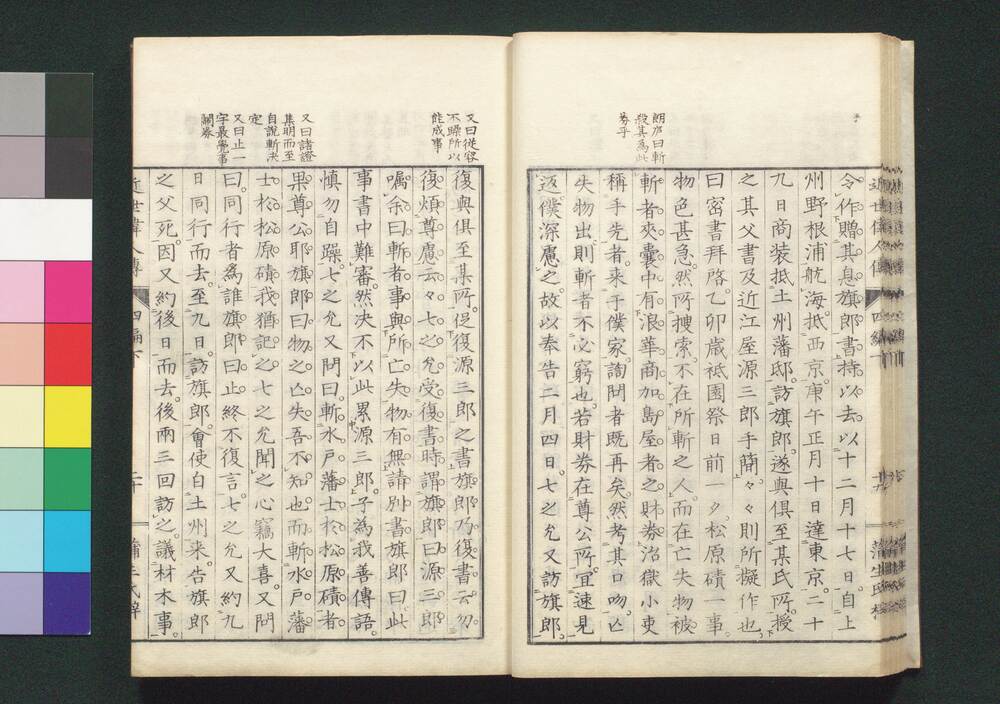 令作贈其息旗郎書持以去以十二月十七日自上
州野根浦航海抵西京庚午正月十日達東京二十
九日商装抵土州藩邸訪旗郎遂與俱至某氏所授
之其父書及近江屋源三郎手簡々々則所擬作也
曰密書拜啓乙卯歳祗園祭日前一夕松原磧一事
物色甚急然所搜索不在所斬之人而在亡失物被
斬者夾囊中有浪華商加島屋者之財券治獄小吏
稱手先者来于僕家詷問者既再矣然考其口吻亡
失物出則斬者不必窮也若財券在尊公所宜速見
返僕深慮之故以奉告二月四日七之允又訪旗郎
朗廬曰斬
殺其為此
券乎
復與俱至某所促復源三郎之書旗郎乃復書云勿
復煩尊慮云々七之允受復書時謂旗郎曰源三郎
嘱余曰斬者事與所亡失物有無請別書旗郎曰此
事書中難審然决不以此累源三郎子為我善傳語
慎勿自躁七之允又問曰斬水戸藩士於松原磧者
果尊公耶旗郎曰物之亡失吾不知也而斬水戸藩
士於松原磧我猶記之七之允聞之心竊大喜又問
曰同行者為誰旗郎曰止終不復言七之允又約九
日同行而去至九日訪旗郎會使自土州来告旗郎
之父死因又約後日而去後兩三回訪之議材木事
又曰從容
不躁所以
能成事
又曰諸證
集明而至
自說斬决
定
又曰止一
字最覺事
關券
近世偉人傳
四編下
二十
蒲生氏梓